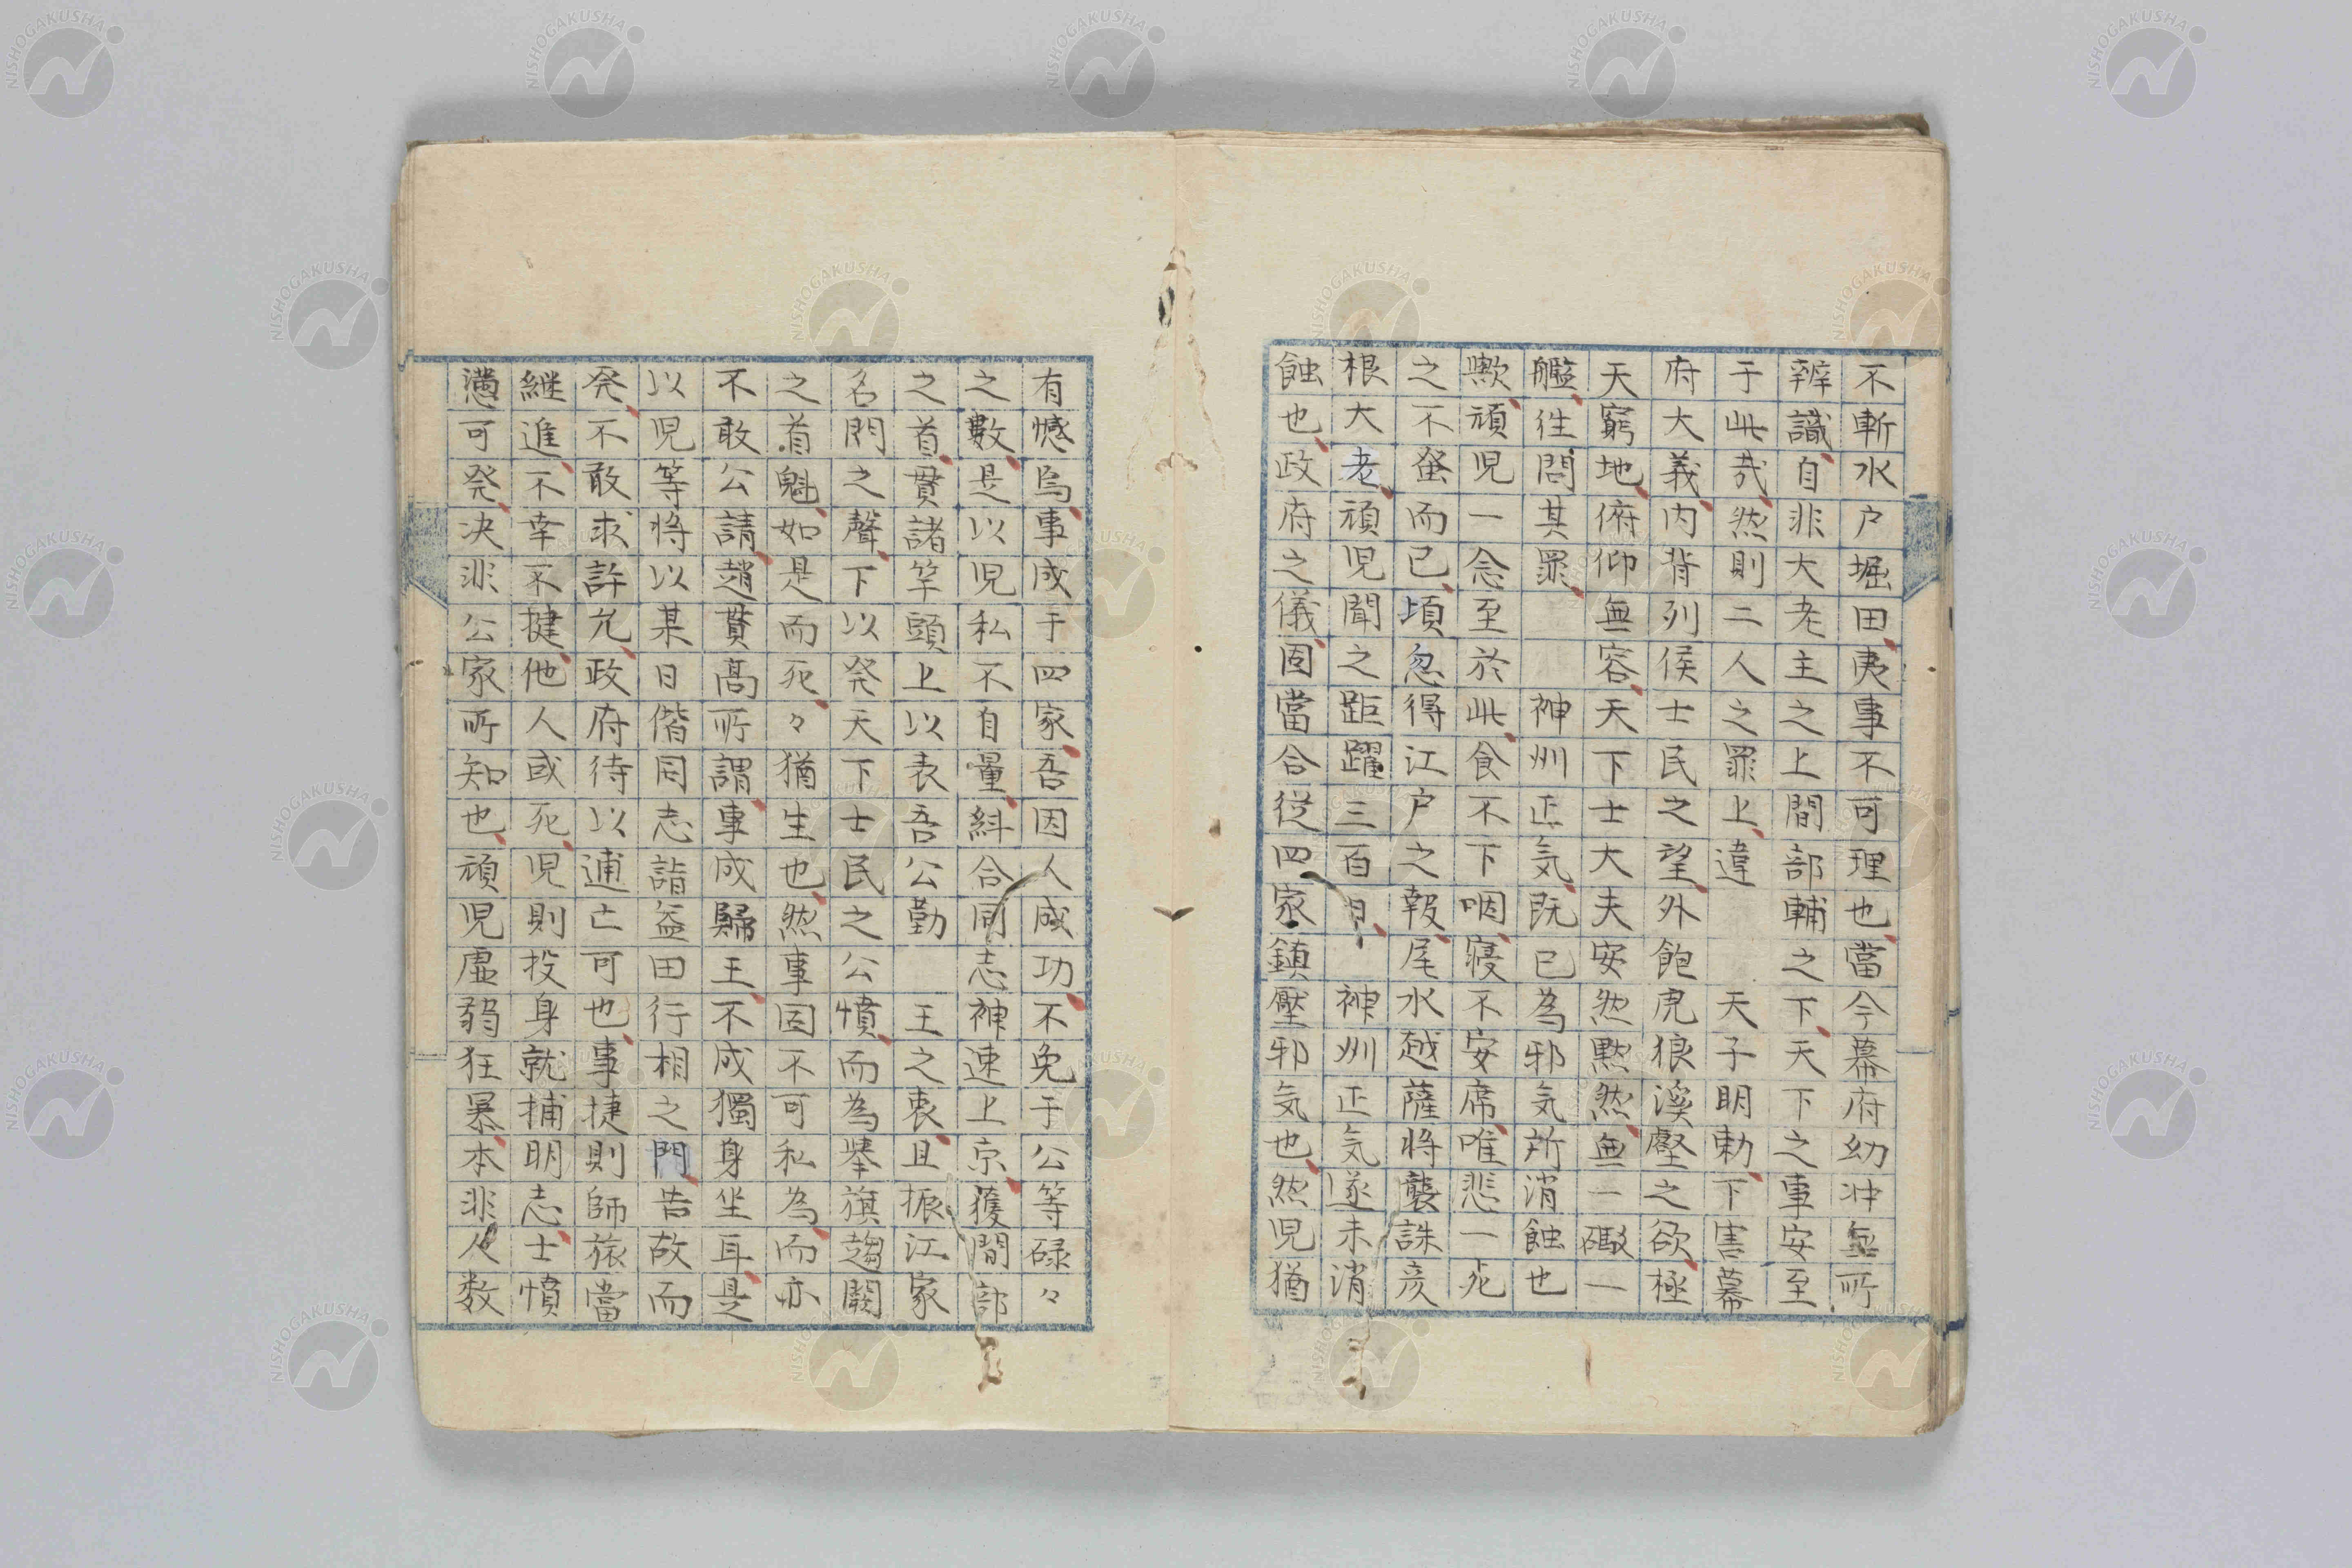 不斬水户堀田夷事不可理也當今幕府幼冲無所
辨識自非大老主之上間部輔之下天下之事安至
于此哉然則二人之罪上違天子明勅下害幕
府大義内背列侯士民之望外飽虎狼溪壑之欲極
天窮地俯仰無容天下士大夫安然黙然無一礮一
艦徃問其罪神州正気既已為邪気所消蝕也
噷頑児一念至於此食不下咽寝不安席唯悲一死
之不蚤而已頃忽得江户之報尾水越薩将襲誅彦
根大老頑児聞之距躍三百日神州正気遂未消
蝕也政府之儀固當合従四家鎮壓邪気也然児猶
有憾焉事成于四家吾因人成功不免于公等碌々
之數是以児私不自量糾合同志神速上京獲間部
之首貫諸竿頭上以表吾公勤王之衷且振江家
名門之聲下以発天下士民之公憤而為舉旗趨闕
之首魁如是而死々猶生也然事固不可私為而亦
不敢公請趙貫高所謂事成歸王不成獨身坐耳是
以児等将以某日偕同志詣益田行相之門告故而
発不敢求許允政府待以逋亡可也事捷則師旅當
継進不幸不捷他人或死児則投身就捕明志士憤
懣可発决非公家所知也頑児虚弱狂暴本非人数
NISHOGAKUSHA